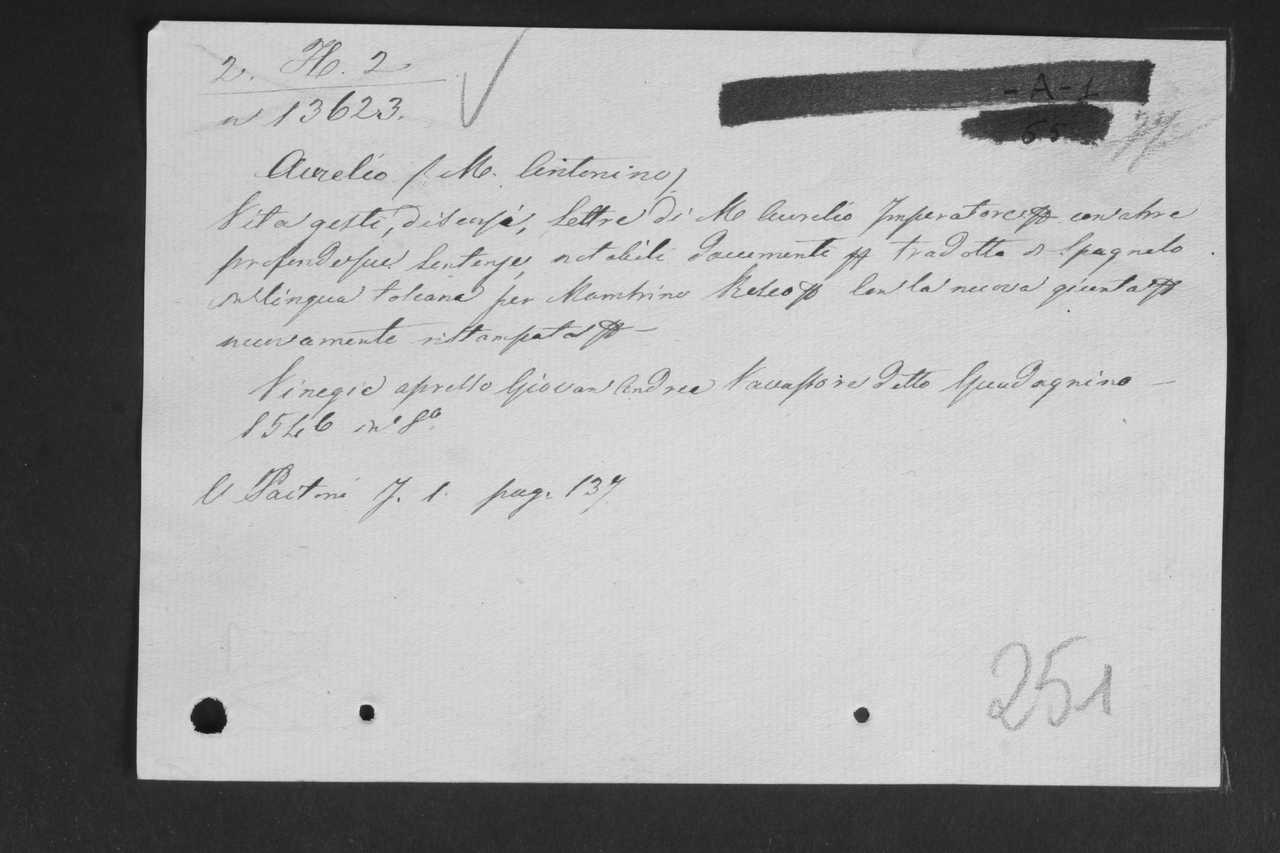 2. H. 2
n 13623.
- A - 1
65
77
Aurelio (M. Antonino)
Vita gesti, discorsi, lettre di M Aurelio Imperatore con altre
profondissue sentenze, notabili documenti tradotta d Spagnolo
in lingua toscana per Mambrino Roseo con la nuova giunta
nuovamente ristampata —
Vinegia apresso Giovan Andrea Vavassore detto Guadagnino —
1546 in 8º.
V Paitoni T. 1. pag. 137
251